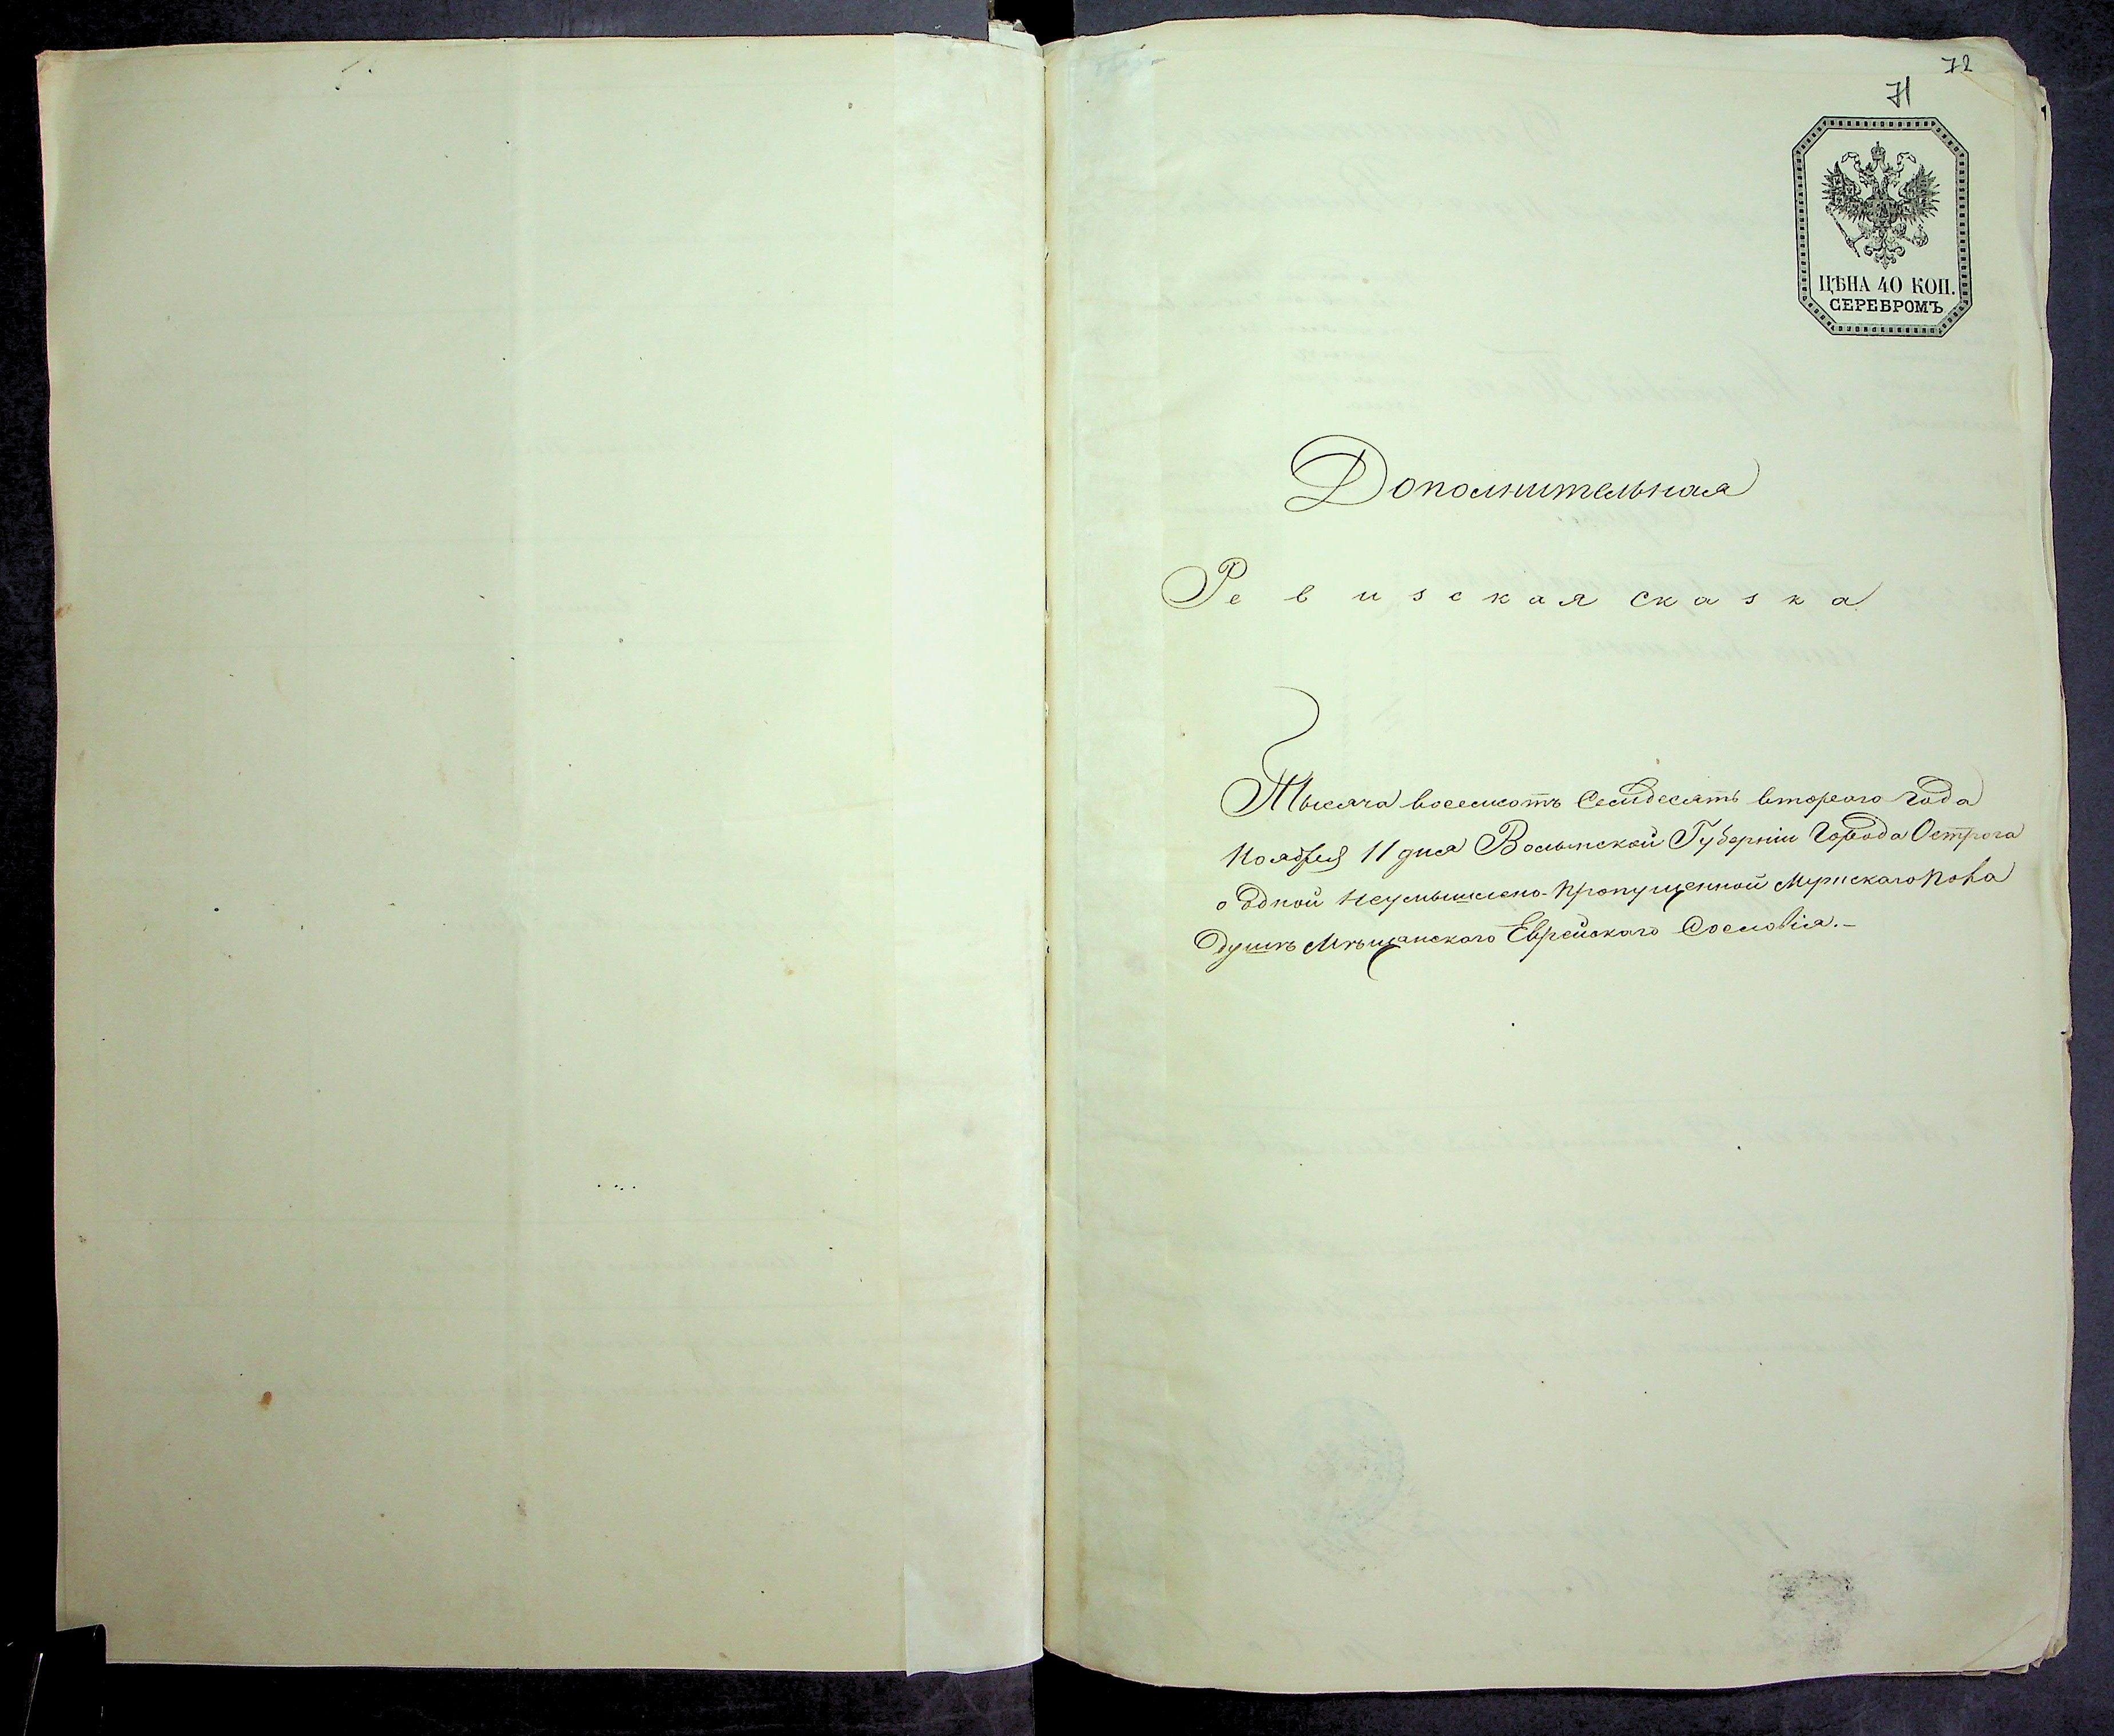 72
71
ЦѢНА 40 КОП.
СЕРЕБРОМЪ
Дополнительная
Ревизская сказка
Тысяча восемсотъ Семдесятъ втораго года
Ноября 11 дня Волынской Губерніи Города Острога
о одной Неумышлено-пропущенной Мужскаго пола
душѣ Мѣщанского Еврейского Сословія.-